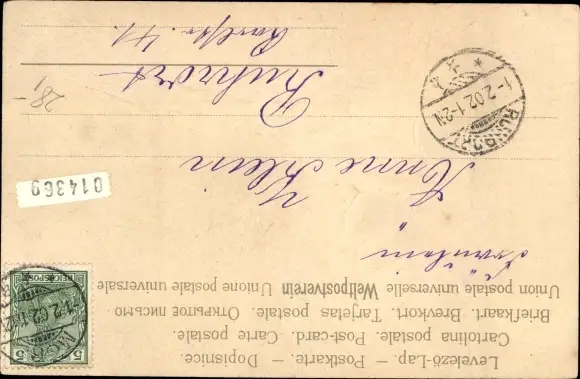 Levelező-Lap. – Postkarte. – Dopisnice.
Cartolina postale. Post-card. Carte postale.
Briefkaart. Brevkort. Tarjetas postale. Открытое письмо
Union postale universelle Weltpostverein Unione postale universale
Fräulein
Anne Klein
Ruhrort
Karlstr. 41.
REICHSPOST
5 5
1-2.02.
RUHRORT
1-2.02.1-2N
* *
014369
28,-